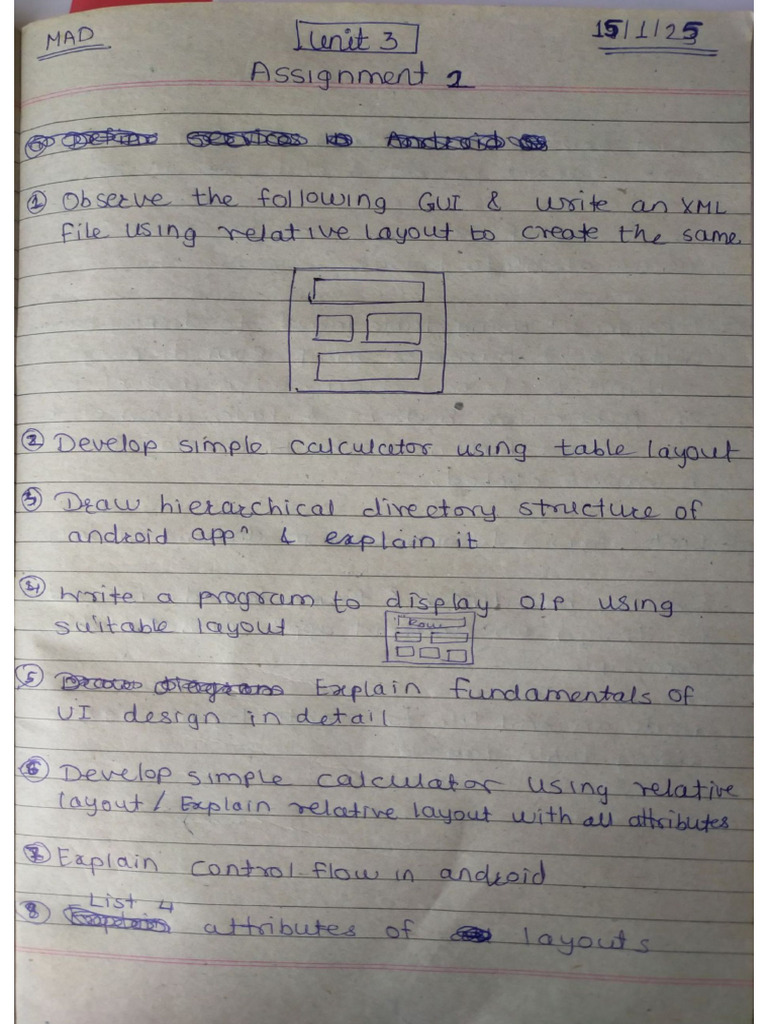 MAD
Unit 3
15/1/25
Assignment 2
① Observe the following GUI & write an XML
file using relative layout to create the same
② Develop simple calculator using table layout
③ Draw hierarchical directory structure of
android appⁿ & explain it
④ Write a program to display O/P using
suitable layout
⑤ Explain fundamentals of
UI design in detail
⑥ Develop simple calculator using relative
layout / Explain relative layout with all attributes
⑦ Explain control flow in android
List 4
⑧ attributes of layouts